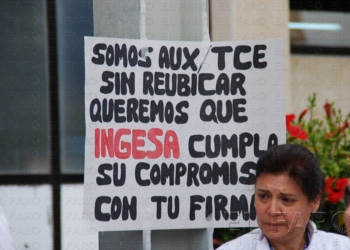 SOMOS AUX/TCE
SIN REUBICAR
QUEREMOS QUE
INGESA CUMPLA
SU COMPROMIS
CON TU FIRMA